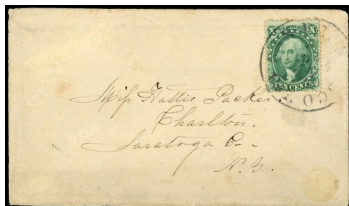 Miss Hattie Packer
Charlton.
Saratoga Co—
N.Y.